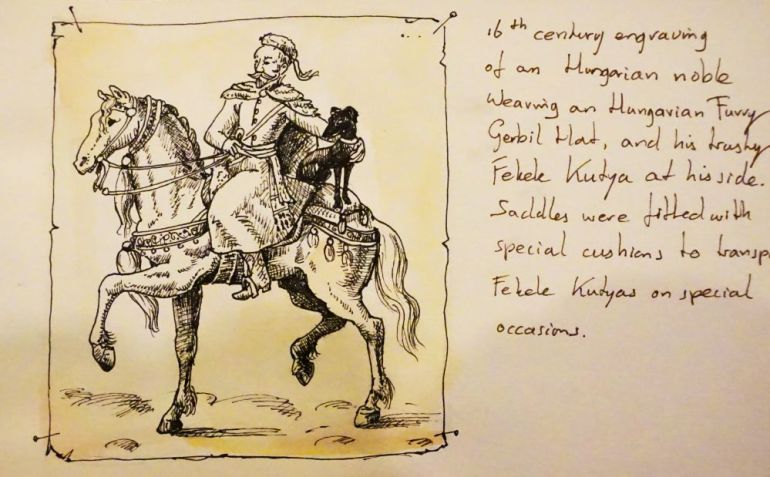 16th century engraving
of an Hungarian noble
Wearing an Hungarian Furry
Gerbil Hat, and his trusty
Fekete Kutya at his side.
Saddles were fitted with
special cushions to transp
Fekete Kutyas on special
occasions.